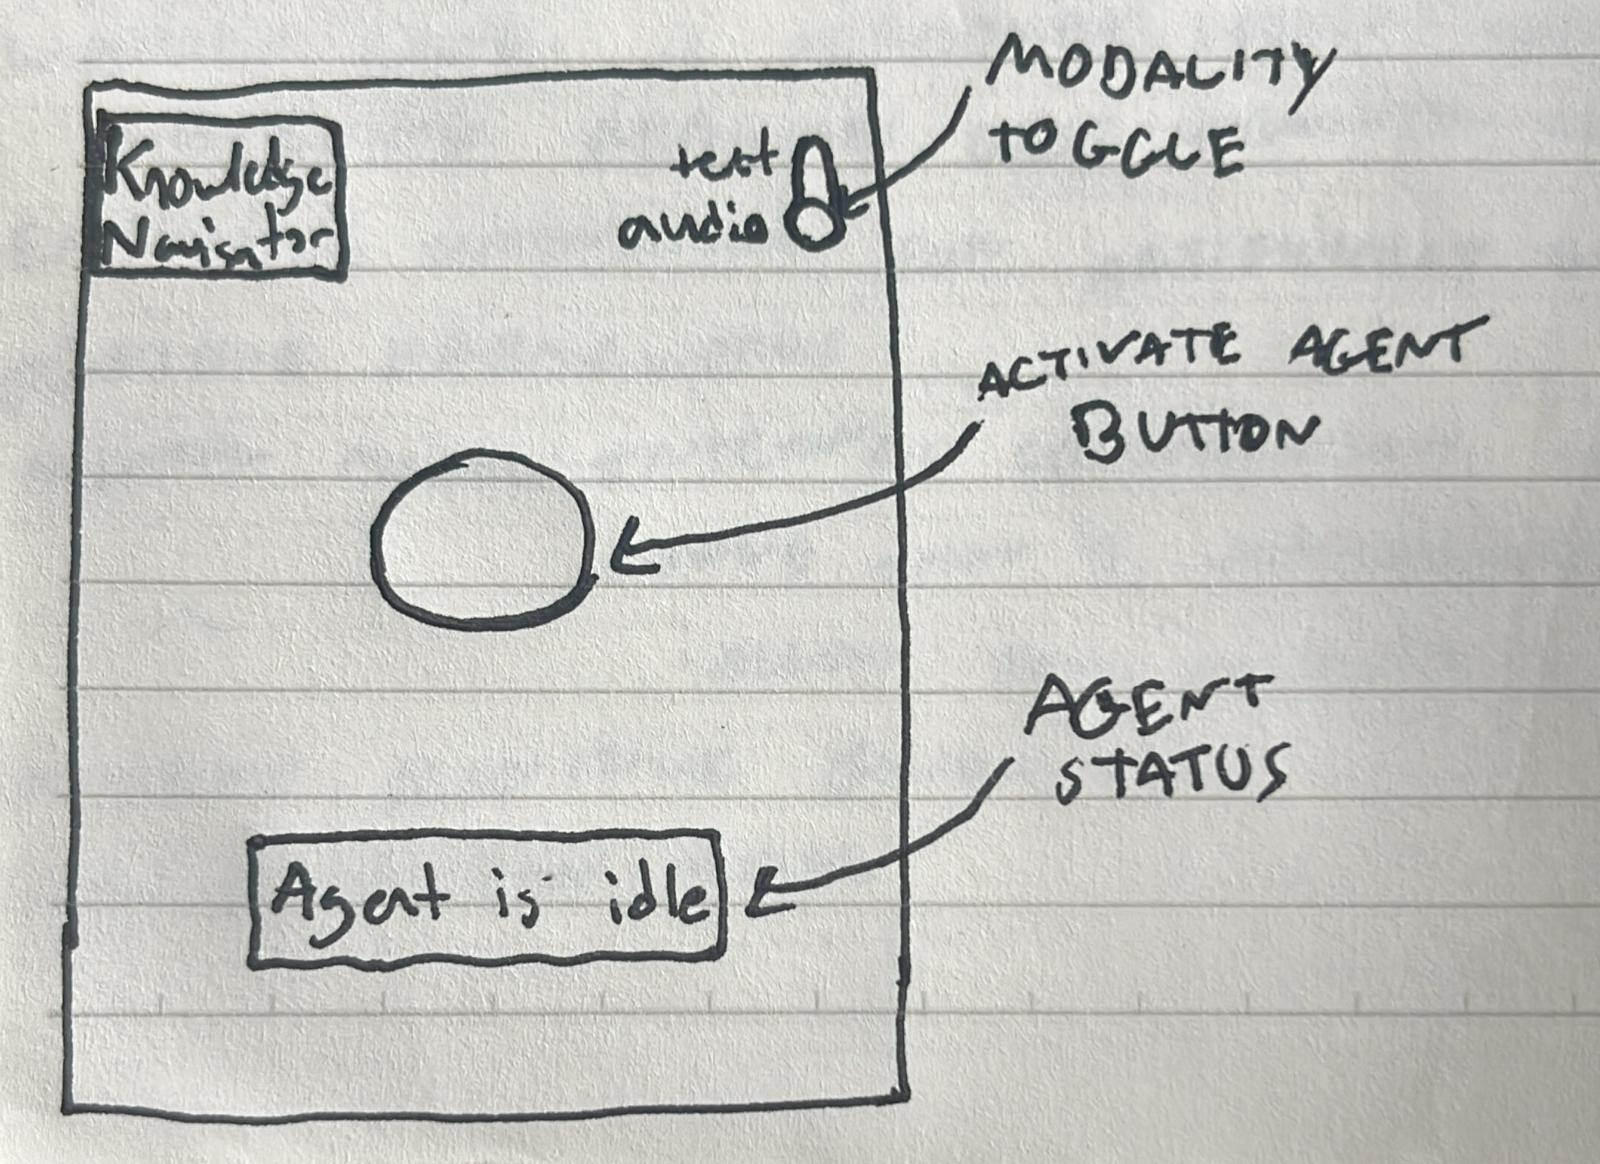 Knowledge
Navigator
text
audio
MODALITY
TOGGLE
ACTIVATE AGENT
BUTTON
AGENT
STATUS
Agent is idle